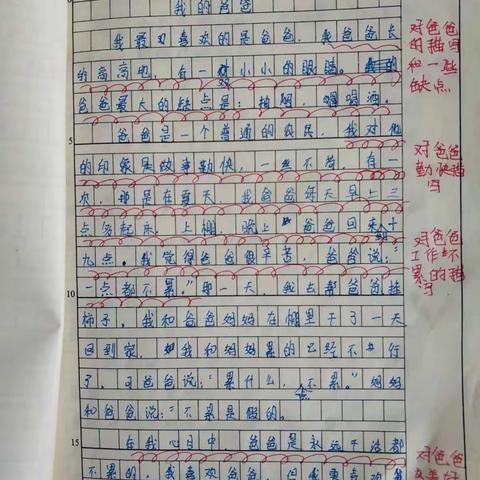 我的爸爸
我最喜欢的是爸爸,我爸爸长
的高高地,有一对小小的眼睛。我的
爸爸最大的缺点是:抽烟,喝酒。
爸爸是一个普通的农民,我对他
的印象是做事勤快,一丝不苟,有一
次,那是在夏天,我爸爸每天早上三
点多起床,上棚,晚上爸爸回来都十
九点。我觉得爸爸很辛苦,爸爸说:“
一点都不累。”那一天,我去帮爸爸挂
柿子,我和爸爸妈妈在棚里干了一天
回到家,我和妈妈累的已经不行
了,可爸爸说:“累什么,不累。”妈妈
和爸爸说:“不累是假的。
在我心目中,爸爸是永远干活都
不累的,我喜欢爸爸,但我更喜欢
对爸爸
的描写
和一些
缺点
对爸爸
勤快描
写
对爸爸
工作不
累的描
写
对爸爸